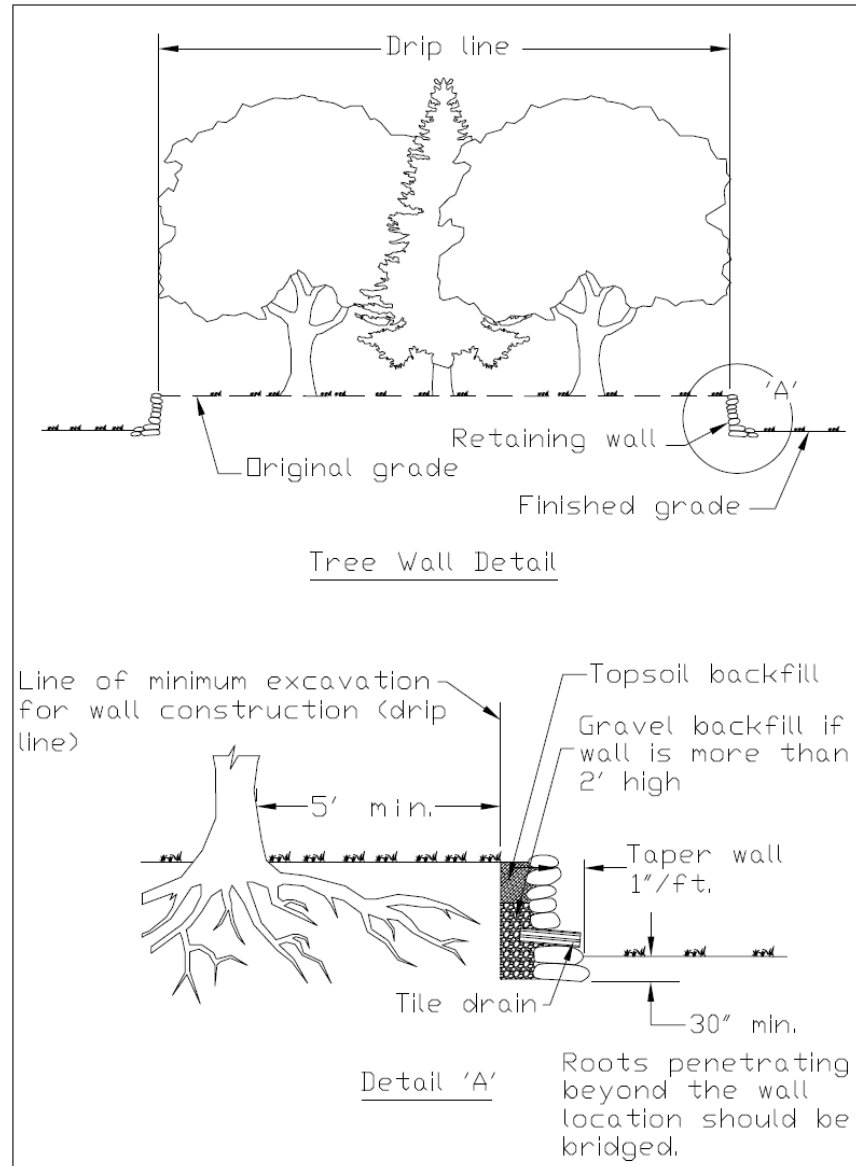 Drip line
'A'
Retaining wall
Original grade
Finished grade
Tree Wall Detail
Line of minimum excavation
for wall construction (drip
line)
Topsoil backfill
Gravel backfill if
wall is more than
2' high
5' min.
Taper wall
1"/ft.
Tile drain
30" min.
Detail 'A'
Roots penetrating
beyond the wall
location should be
bridged.